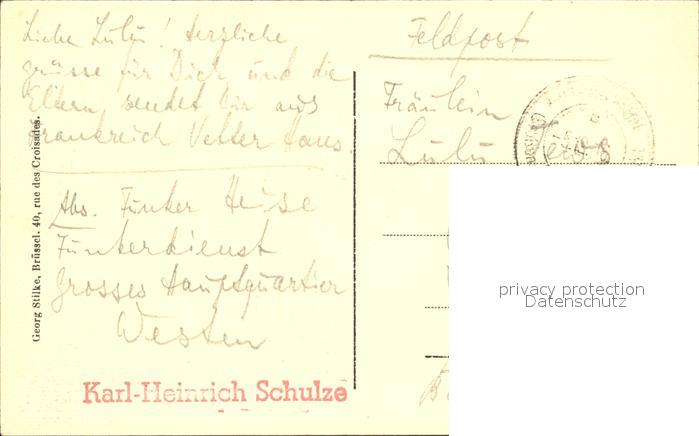 Liebe Lulu! Herzliche
grüsse für Dich und die
Eltern, sendet Dir aus
Frankreich Vetter Hans.
Abs. Funker Heise
Funkerdienst
Grosses Hauptquartier
Westen
Karl-Heinrich Schulze
Georg Stilke, Brüssel. 40, rue des Croisades.
Feldpost
Fräulein
Lulu
privacy protection
Datenschutz